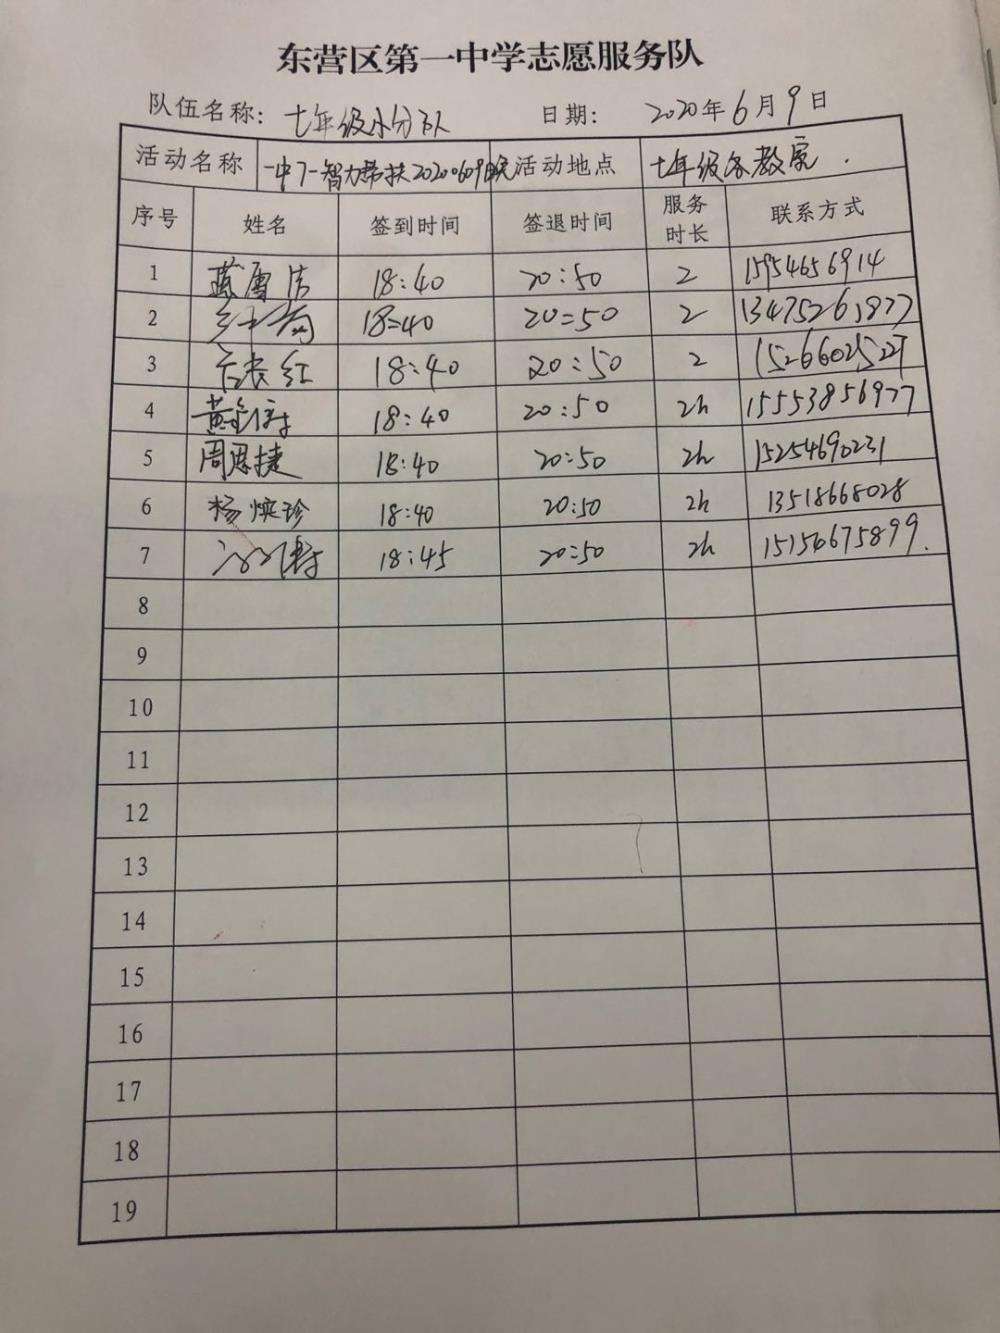 东营区第一中学志愿服务队
队伍名称: 七年级小分队 日期: 2020年6月9日
活动名称 一中7-智力帮扶20200609晚 活动地点 七年级各教室.
序号 姓名 签到时间 签退时间 服务时长 联系方式
1 18:40 20:50 2 15954656914
2 18:40 20:50 2
3 18:40 20:50 2
4 18:40 20:50 2h 15553856977
5 周恩捷 18:40 20:50 2h 15254690231
6 杨焕珍 18:40 20:50 2h 13518668028
7 18:45 20:50 2h 15156675899.
8
9
10
11
12
13
14
15
16
17
18
19